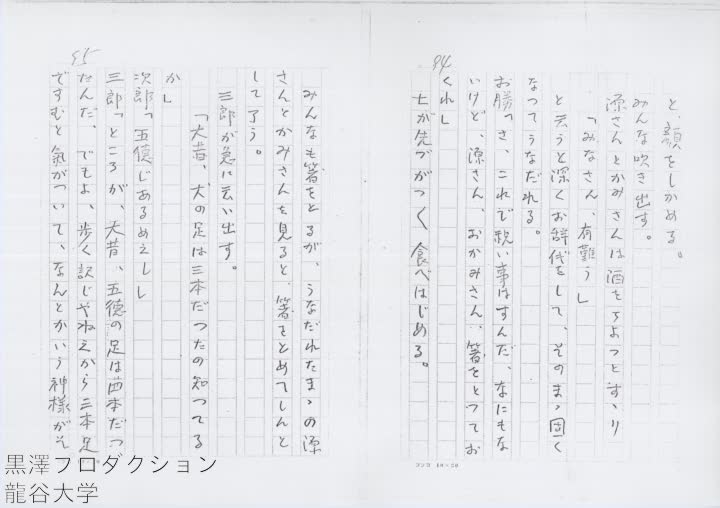 94
と、顔をしかめる。
みんな吹き出す。
源さんとかみさんは酒をちよつとすゝり
「みなさん、有難う」
と云うと深くお辞儀をして、そのまゝ固く
なつてうなだれる。
お勝「さ、これで祝い事はすんだ、なにもな
いけど、源さん、おかみさん、箸をとつてお
くれ」
七が先づがつく食べはじめる。
95
みんなも箸をとるが、うなだれたまゝの源
さんとかみさんを見ると、箸をとめてしんと
して了う。
三郎が急に云い出す。
「大昔、犬の足は三本だつたの知つてる
か」
次郎「五徳じあるめえし」
三郎「ところが、大昔、五徳の足は四本だつ
たんだ、でもよ、歩く訳じやねえから三本足
ですむと氣がついて、なんとかいう神様がそ
コンゴ 10×20
黒澤プロダクション
龍谷大学